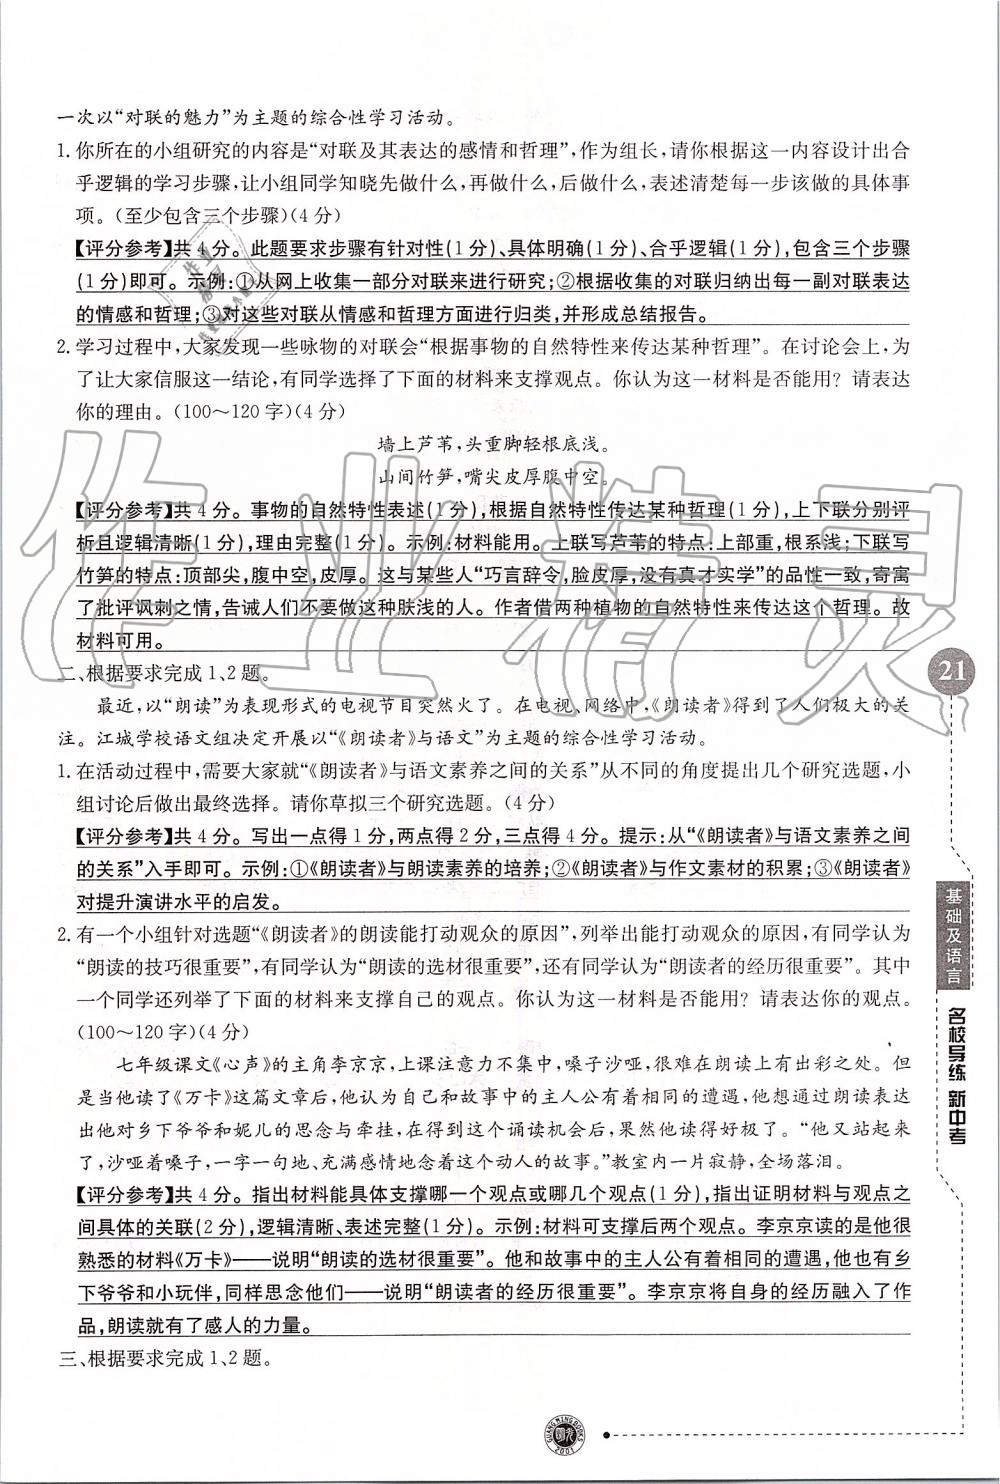 一次以“对联的魅力”为主题的综合性学习活动。
1. 你所在的小组研究的内容是“对联及其表达的感情和哲理”，作为组长，请你根据这一内容设计出合
乎逻辑的学习步骤，让小组同学知晓先做什么，再做什么，后做什么，表述清楚每一步该做的具体事
项。（至少包含三个步骤）（4分）
【评分参考】共4分。此题要求步骤有针对性（1分）、具体明确（1分）、合乎逻辑（1分），包含三个步骤
（1分）即可。示例：①从网上收集一部分对联来进行研究；②根据收集的对联归纳出每一副对联表达
的情感和哲理；③对这些对联从情感和哲理方面进行归类，并形成总结报告。
2. 学习过程中，大家发现一些咏物的对联会“根据事物的自然特性来传达某种哲理”。在讨论会上，为
了让大家信服这一结论，有同学选择了下面的材料来支撑观点。你认为这一材料是否能用？请表达
你的理由。（100～120字）（4分）
墙上芦苇，头重脚轻根底浅。
山间竹笋，嘴尖皮厚腹中空。
【评分参考】共4分。事物的自然特性表述（1分），根据自然特性传达某种哲理（1分），上下联分别评
析且逻辑清晰（1分），理由完整（1分）。示例：材料能用。上联写芦苇的特点：上部重，根系浅；下联写
竹笋的特点：顶部尖，腹中空，皮厚。这与某些人“巧言辞令，脸皮厚，没有真才实学”的品性一致，寄寓
了批评讽刺之情，告诫人们不要做这种肤浅的人。作者借两种植物的自然特性来传达这个哲理。故
材料可用。
二、根据要求完成1、2题。
最近，以“朗读”为表现形式的电视节目突然火了。在电视、网络中，《朗读者》得到了人们极大的关
注。江城学校语文组决定开展以“《朗读者》与语文”为主题的综合性学习活动。
1. 在活动过程中，需要大家就“《朗读者》与语文素养之间的关系”从不同的角度提出几个研究选题，小
组讨论后做出最终选择。请你草拟三个研究选题。（4分）
【评分参考】共4分。写出一点得1分，两点得2分，三点得4分。提示：从“《朗读者》与语文素养之间
的关系”入手即可。示例：①《朗读者》与朗读素养的培养；②《朗读者》与作文素材的积累；③《朗读者》
对提升演讲水平的启发。
2. 有一个小组针对选题“《朗读者》的朗读能打动观众的原因”，列举出能打动观众的原因，有同学认为
“朗读的技巧很重要”，有同学认为“朗读的选材很重要”，还有同学认为“朗读者的经历很重要”。其中
一个同学还列举了下面的材料来支撑自己的观点。你认为这一材料是否能用？请表达你的观点。
（100～120字）（4分）
七年级课文《心声》的主角李京京，上课注意力不集中，嗓子沙哑，很难在朗读上有出彩之处。但
是当他读了《万卡》这篇文章后，他认为自己和故事中的主人公有着相同的遭遇，他想通过朗读表达
出他对乡下爷爷和妮儿的思念与牵挂，在得到这个诵读机会后，果然他读得好极了。“他又激动起来
了，沙哑着嗓子，一字一句地、充满感情地念着这个动人的故事。”教室内一片寂静，全场落泪。
【评分参考】共4分。指出材料能具体支撑哪一个观点或哪几个观点（1分），指出证明材料与观点之
间具体的关联（2分），逻辑清晰、表述完整（1分）。示例：材料可支撑后两个观点。李京京读的是他很
熟悉的材料《万卡》——说明“朗读的选材很重要”。他和故事中的主人公有着相同的遭遇，他也有乡
下爷爷和小玩伴，同样思念他们——说明“朗读者的经历很重要”。李京京将自身的经历融入了作
品，朗读就有了感人的力量。
三、根据要求完成1、2题。
21
基础及语言
名校导练 新中考
GUANG MING BOOKS
2001
作业精灵